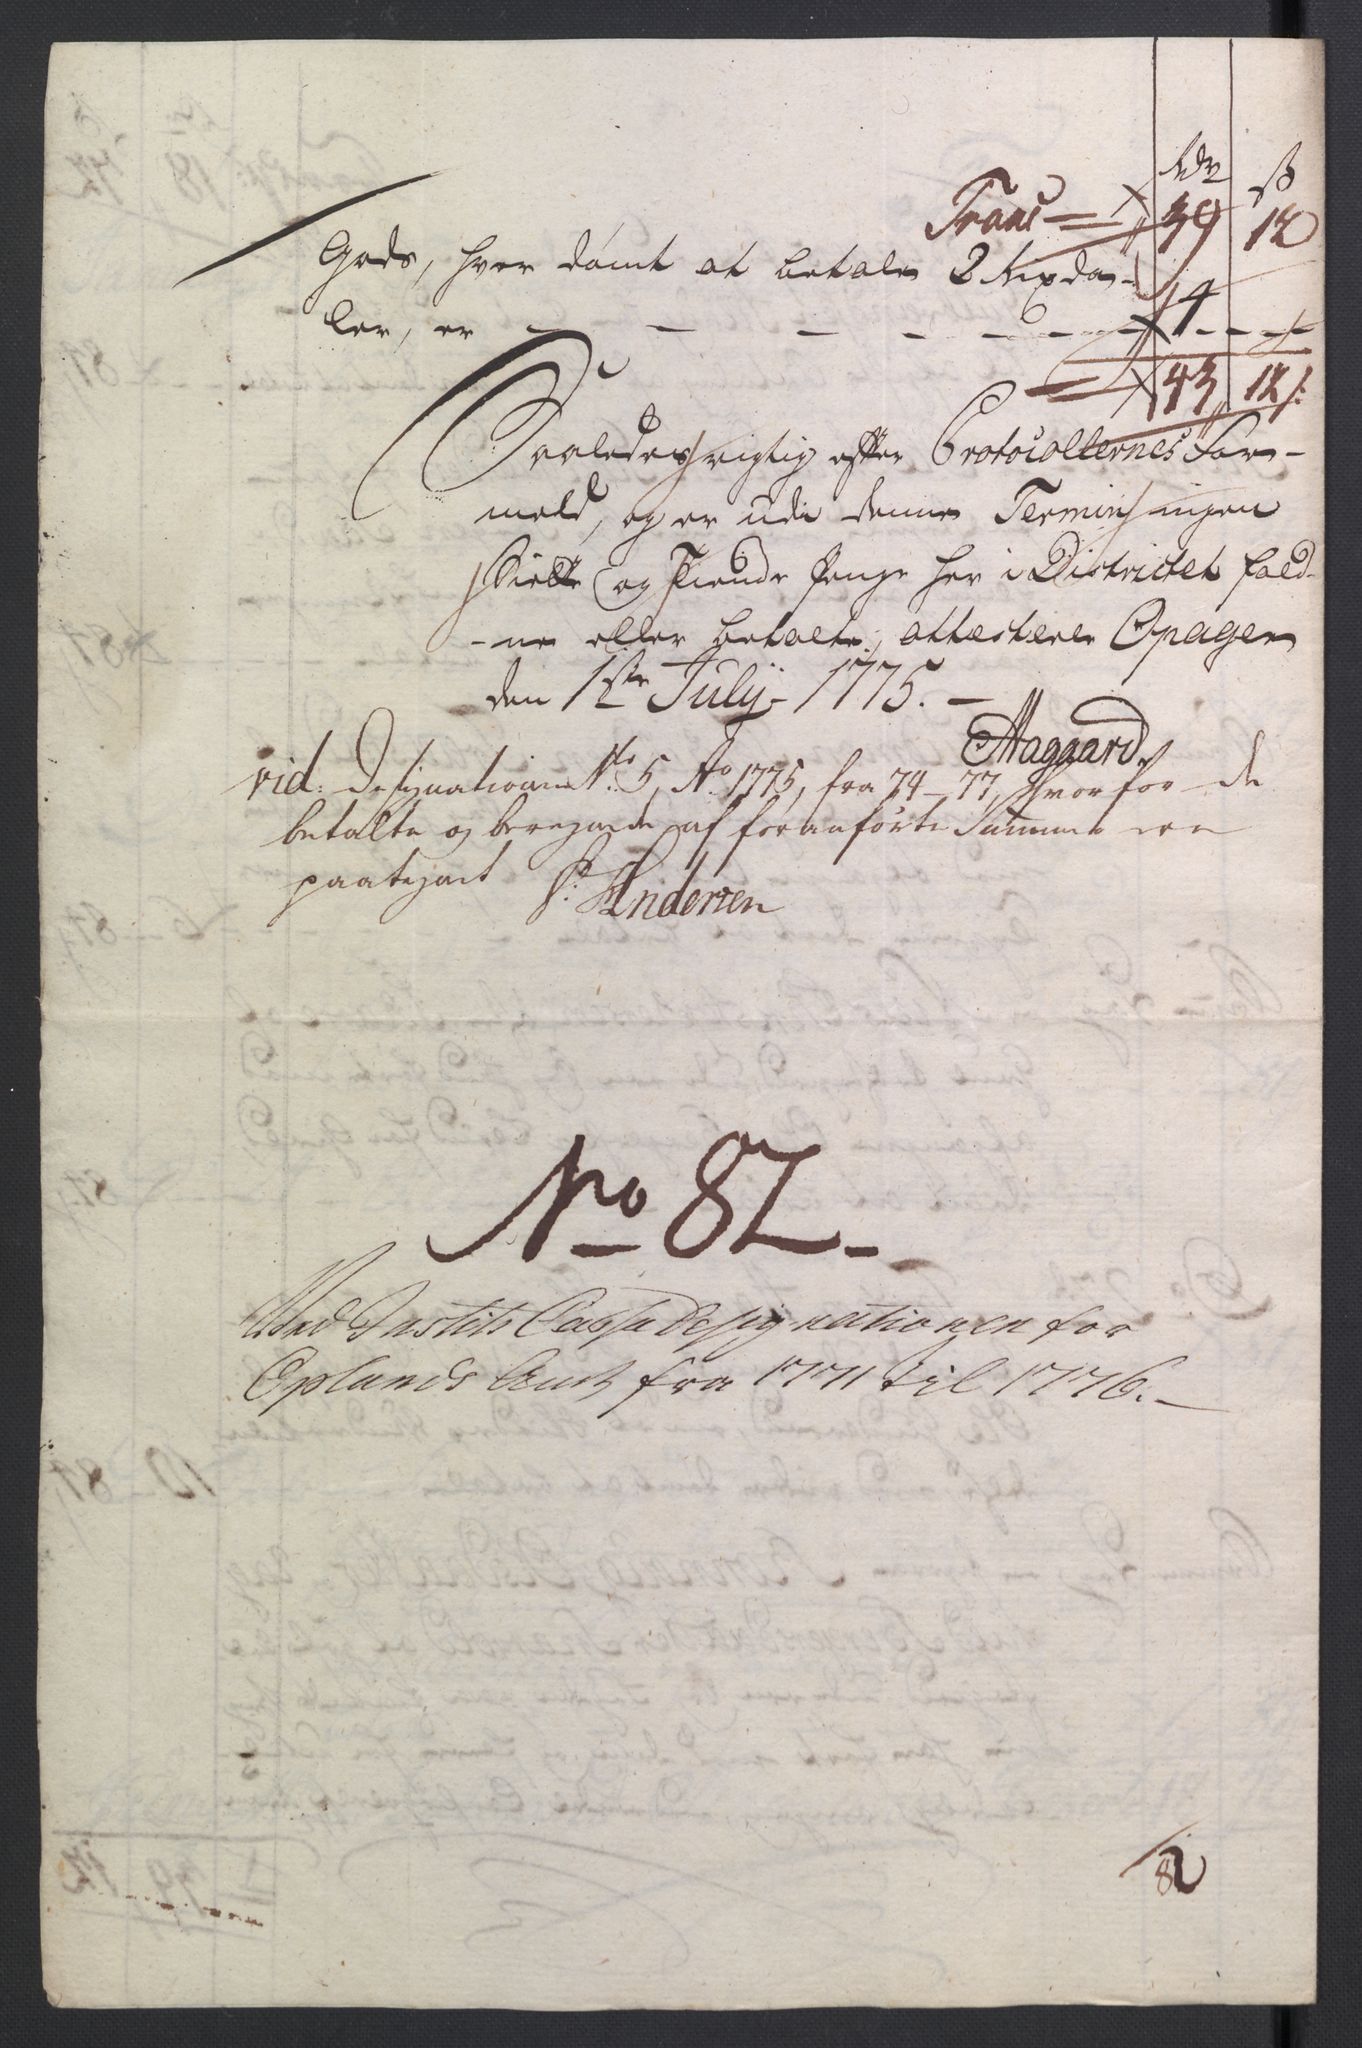 Rdr ß
Trans = 39 12
Gods, hver dømt at betale 2 Rixda-
ler, er - - - - - - - 4 - - -
= 43 12
Saaledes rigtig efter Protocollernes For-
meld, og er udi denne Termin ingen
Siette og Tiende Penge her i Districtet fald-
ne eller betalte, attesterer Opager
den 1ste Julij 1775. -
Aagaard
vid: Designationen No 5, Ao 1775, fra 74-77, hvorfor de
betalte og beregnede af foranførte Summe ere
paategnet P: Andersen
No 82.
Med Justits Cassa Designationen for
Oplands Amt fra 1771 til 1776.
82